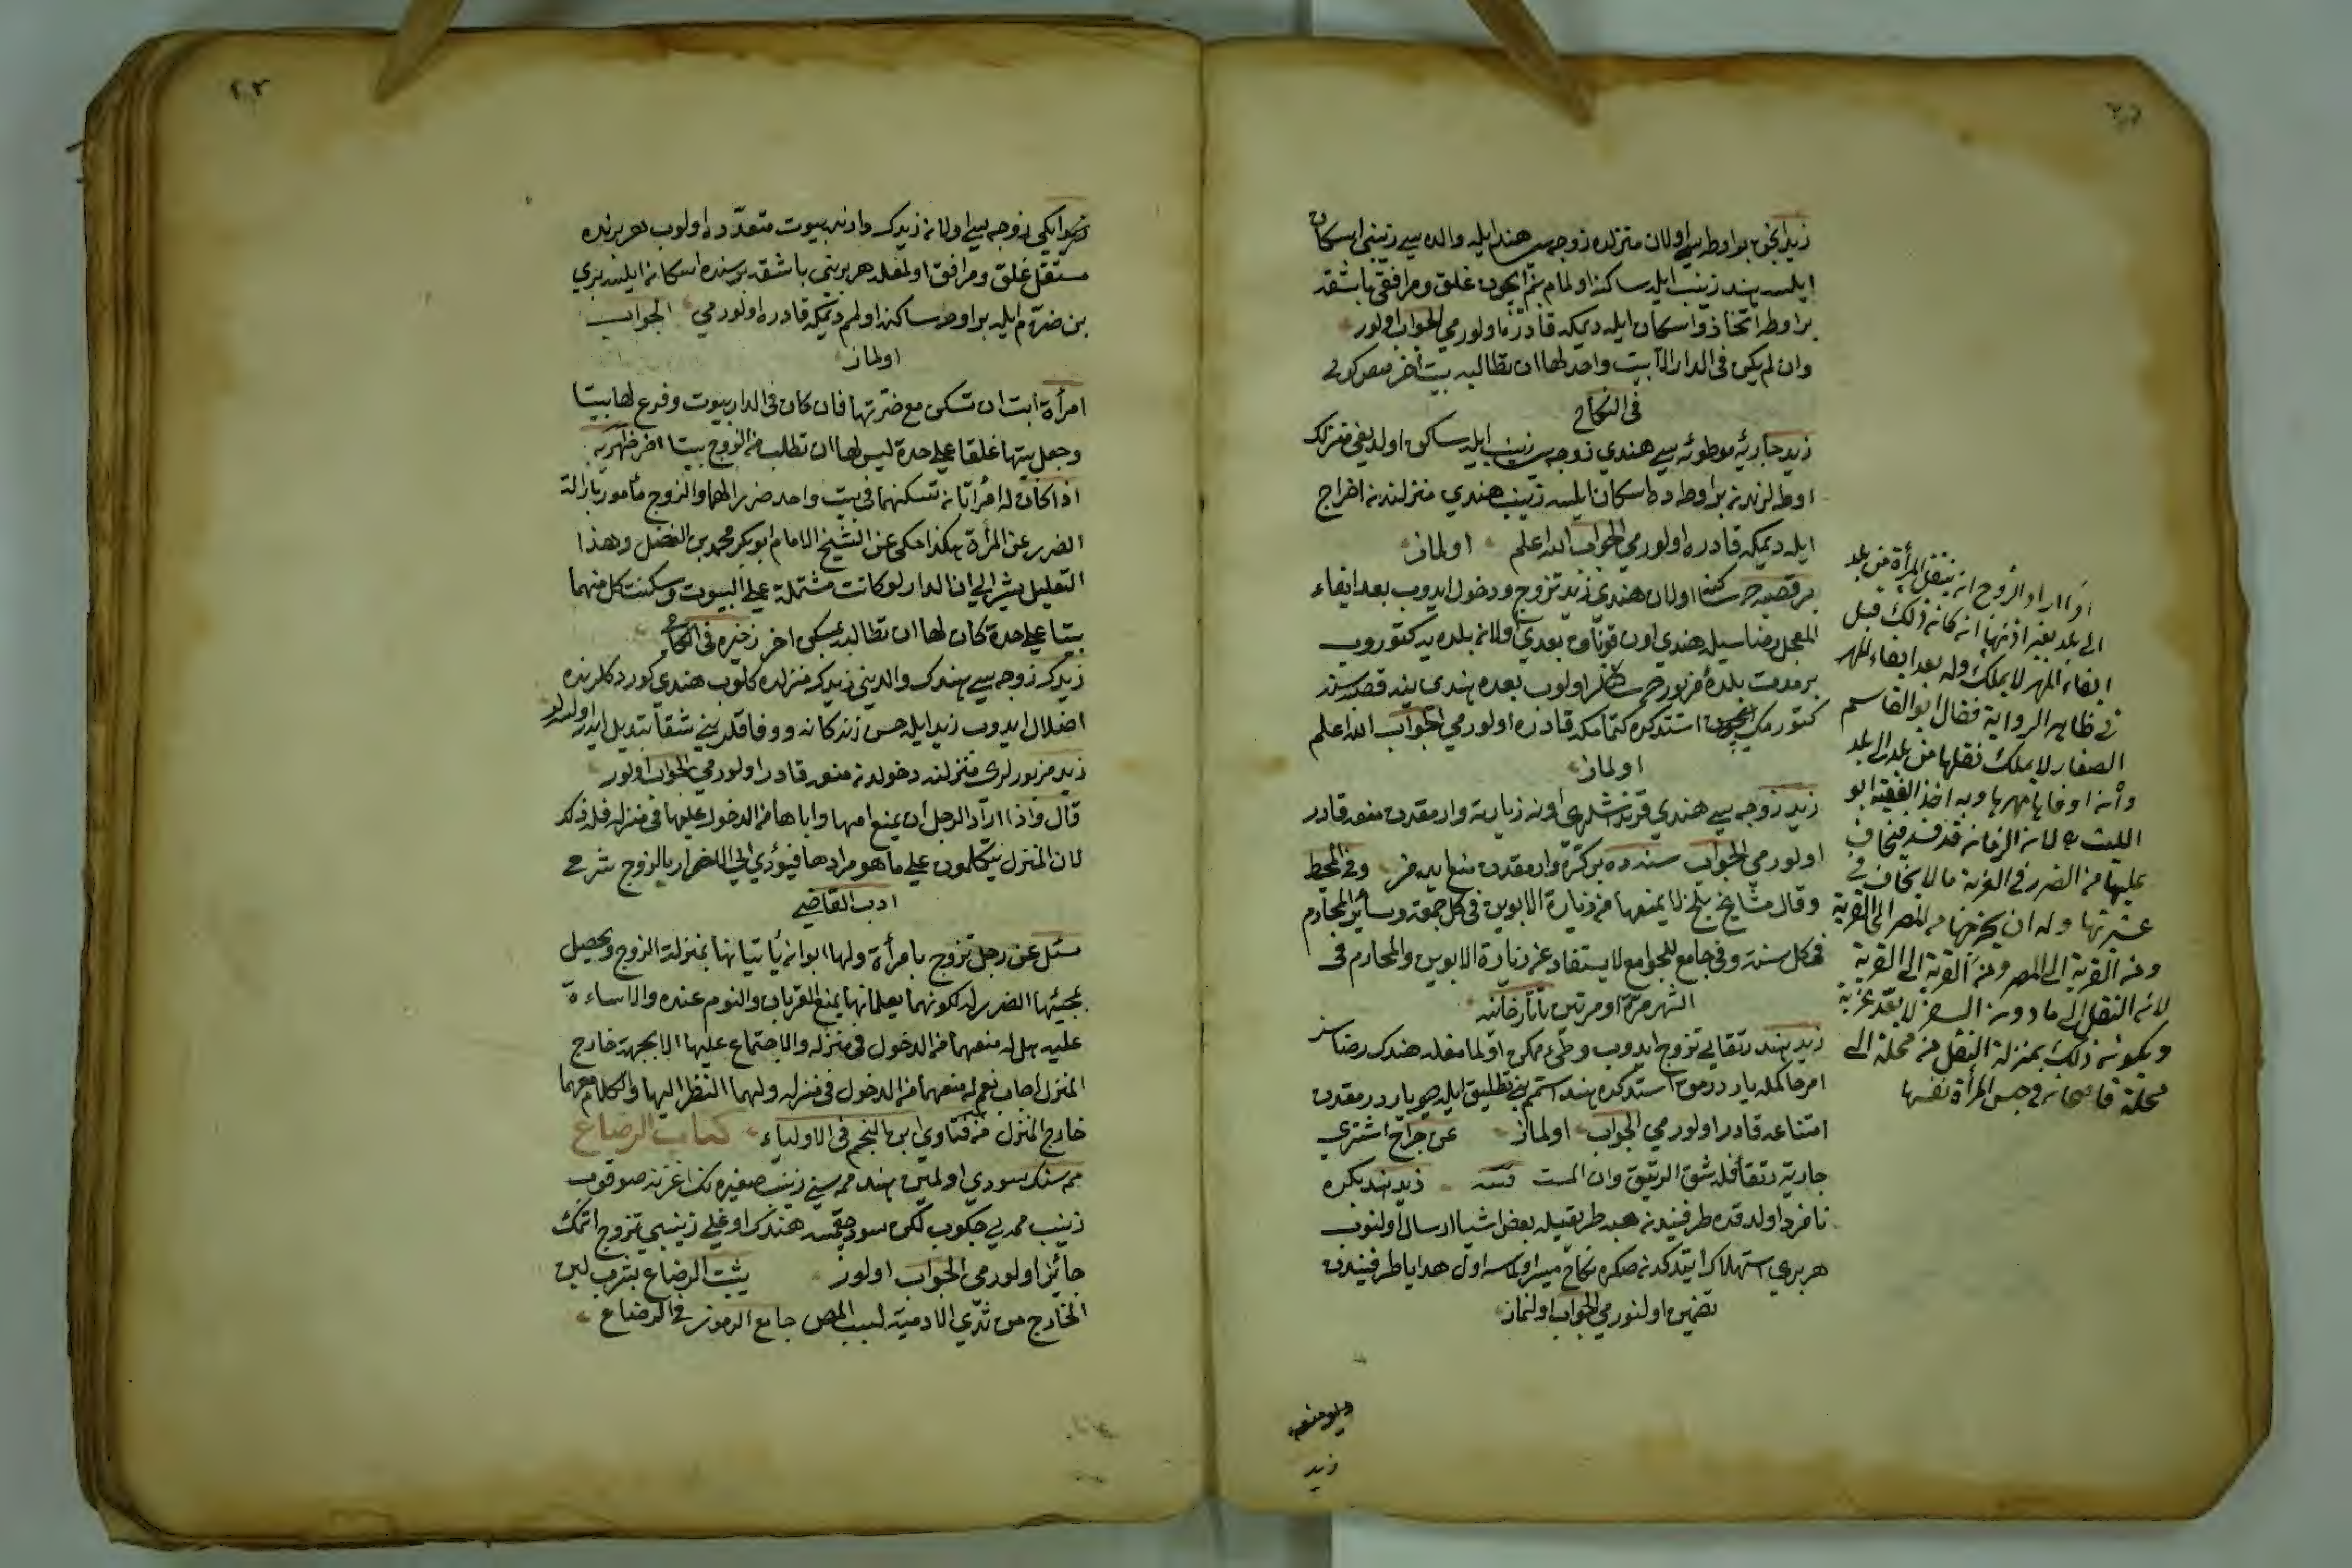 زيد ايچون بر اوطه سي اولان منزلده زوجه سي هند ايله والده سي زينبي اسكان
ايلسه هند زينب ايله ساكنه اولمام بنم ايچون غلق و مرافقي باشقه
بر اوطه اتخاذ و اسكان ايله ديمكه قادره اولور مي الجواب اولور
وان لم يكن في الدار الا بيت واحد لها ان تطالبه ببيت آخر
في النكاح
زيد جاريۀ موطوئه سي هندي زوجه سي زينب ايله ساكن اولديغي منزلك
اوطه لرندن بر اوطه ده اسكان ايلسه زينب هندي منزلندن اخراج
ايله ديمكه قادره اولور مي الجواب الله اعلم اولماز
بر قصبه ده ساكنه اولان هندي زيد تزوج و دخول ايدوب بعد ايفاء
المعجل رضاسيله هندي اون قوناق بعدي اولان بلده يه كتوروب
بر مدت بلدۀ مزبوره ده ساكنلر اولوب بعده هندي ينه قصبه سنه
كتورمك ايچون استدكده كتمامكه قادره اولور مي الجواب الله اعلم
اولماز
زيد زوجه سي هندي قرنداشلري اونه زيارته واردقدن منعه قادر
اولور مي الجواب سنه ده بر كره واردقدن منع ايده مز وفي المحيط
وقال مشايخ بلخ لا يمنعها من زيارة الابوين في كل جمعة وسائر المحارم
في كل سنة وفي جامع الجوامع لا يستفاد عن زيارة الابوين والمحارم في
الشهر مرة او مرتين تاتارخانيه
زيد هند رتقايي تزوج ايدوب وطئ ممكن اولمامغله هندك رضاسز
امتناعه قادر اولور مي الجواب اولماز عن جراح اشتري
جارية رتقا فله شق الرتق وان المت قنيه زيد هند بكره
نامزد اولدقده طرفيندن هبه طريقيله بعض اشيا ارسال اولنوب
هر بري استهلاك ايتدكدن صكره نكاح ميسر اولماسه اول هدايا طرفيندن
تضمين اولنور مي الجواب اولنماز
زيد
اذا اراد الزوج ان ينقل المرأة من بلد
الى بلد بغير اذنها ان كان ذلك قبل
ايفاء المهر لا يملك وله بعد ايفاء المهر
في ظاهر الرواية فقال ابو القاسم
الصفار لا يملك نقلها من بلد الى بلد
وان اوفاها مهرها وبه اخذ الفقيه ابو
الليث لان الزمان قد فسد فيخاف
عليها من الضرر في الغربة ما لا يخاف في
عشيرتها وله ان يخرجها من المصر الى القرية
ومن القرية الى المصر ومن القرية الى القرية
لان النقل الى ما دون السفر لا يعد غربة
ويكون ذلك بمنزلة النقل من محلة الى
محلة قاضيخان في حبس المرأة نفسها
زيد ايكي زوجه سي اولان زيدك دارنده بيوت متعدده اولوب هر برنده
مستقل غلق و مرافق اولمغله هر بريني باشقه برسنده اسكان ايلسه بري
بن ضرتم ايله بر اوده ساكنه اولمم ديمكه قادره اولور مي الجواب
اولماز
امرأة ابت ان تسكن مع ضرتها فان كان في الدار بيوت وفرع لها بيتا
وجعل بيتها غلقا على حدة ليس لها ان تطلب من الزوج بيتا اخر ظهيريه
اذا كان له امرأتان تسكنهما في بيت واحد ضررا لهما والزوج مأمور بازالة
الضرر عن المرأة هكذا حكي عن الشيخ الامام ابو بكر محمد بن الفضل وهذا
التعليل يشير الى ان الدار لو كانت مشتملة على البيوت وسكنت كل منهما
بيتا على حدة كان لها ان تطالبه بمسكن اخر ذخيره في النكاح
زيدك زوجه سي هندك والديني زيدك منزلنده كلوب هندي كوردكلرنده
اضلال ايدوب زيد ايله حسن زندكانه و وفاقلريني شقاقه تبديل ايدر اولسه لر
زيد مزبورلري منزلنه دخولدن منعه قادر اولور مي الجواب اولور
قال واذا اراد الرجل ان يمنع امها واباها من الدخول عليها في منزله فله ذلك
لان المنزل يتكلمون على ما هو مرادها فيؤدي الى الاضرار بالزوج شرح
ادب القاضي
سئل عن رجل تزوج بامرأة ولها ابوان يأتيانها بمنزلة الزوج ويحصل
بمجيئهما الضرر له لكونهما يعلمانها بمنع القربان والنوم عنده والاساءة
عليه هل له منعهما من الدخول في منزله والاجتماع عليها الا بجهة خارج
المنزل اجاب نعم له منعهما من الدخول في منزله ولهما النظر اليها والكلام معهما
خارج المنزل من فتاوى ابن النجم في الاولياء كتاب الرضاع
ممه سنك سودي اولمين هند ممه سني زينب صغيره نك اغزنه صوقوب
زينب ممه يي چكوب لكن سود چقمسه هندك اوغلي زينبي تزوج اتمك
جائز اولور مي الجواب اولور يثبت الرضاع بشرب لبن
الخارج من ثدي الادمية لسبب المص جامع الرموز في الرضاع